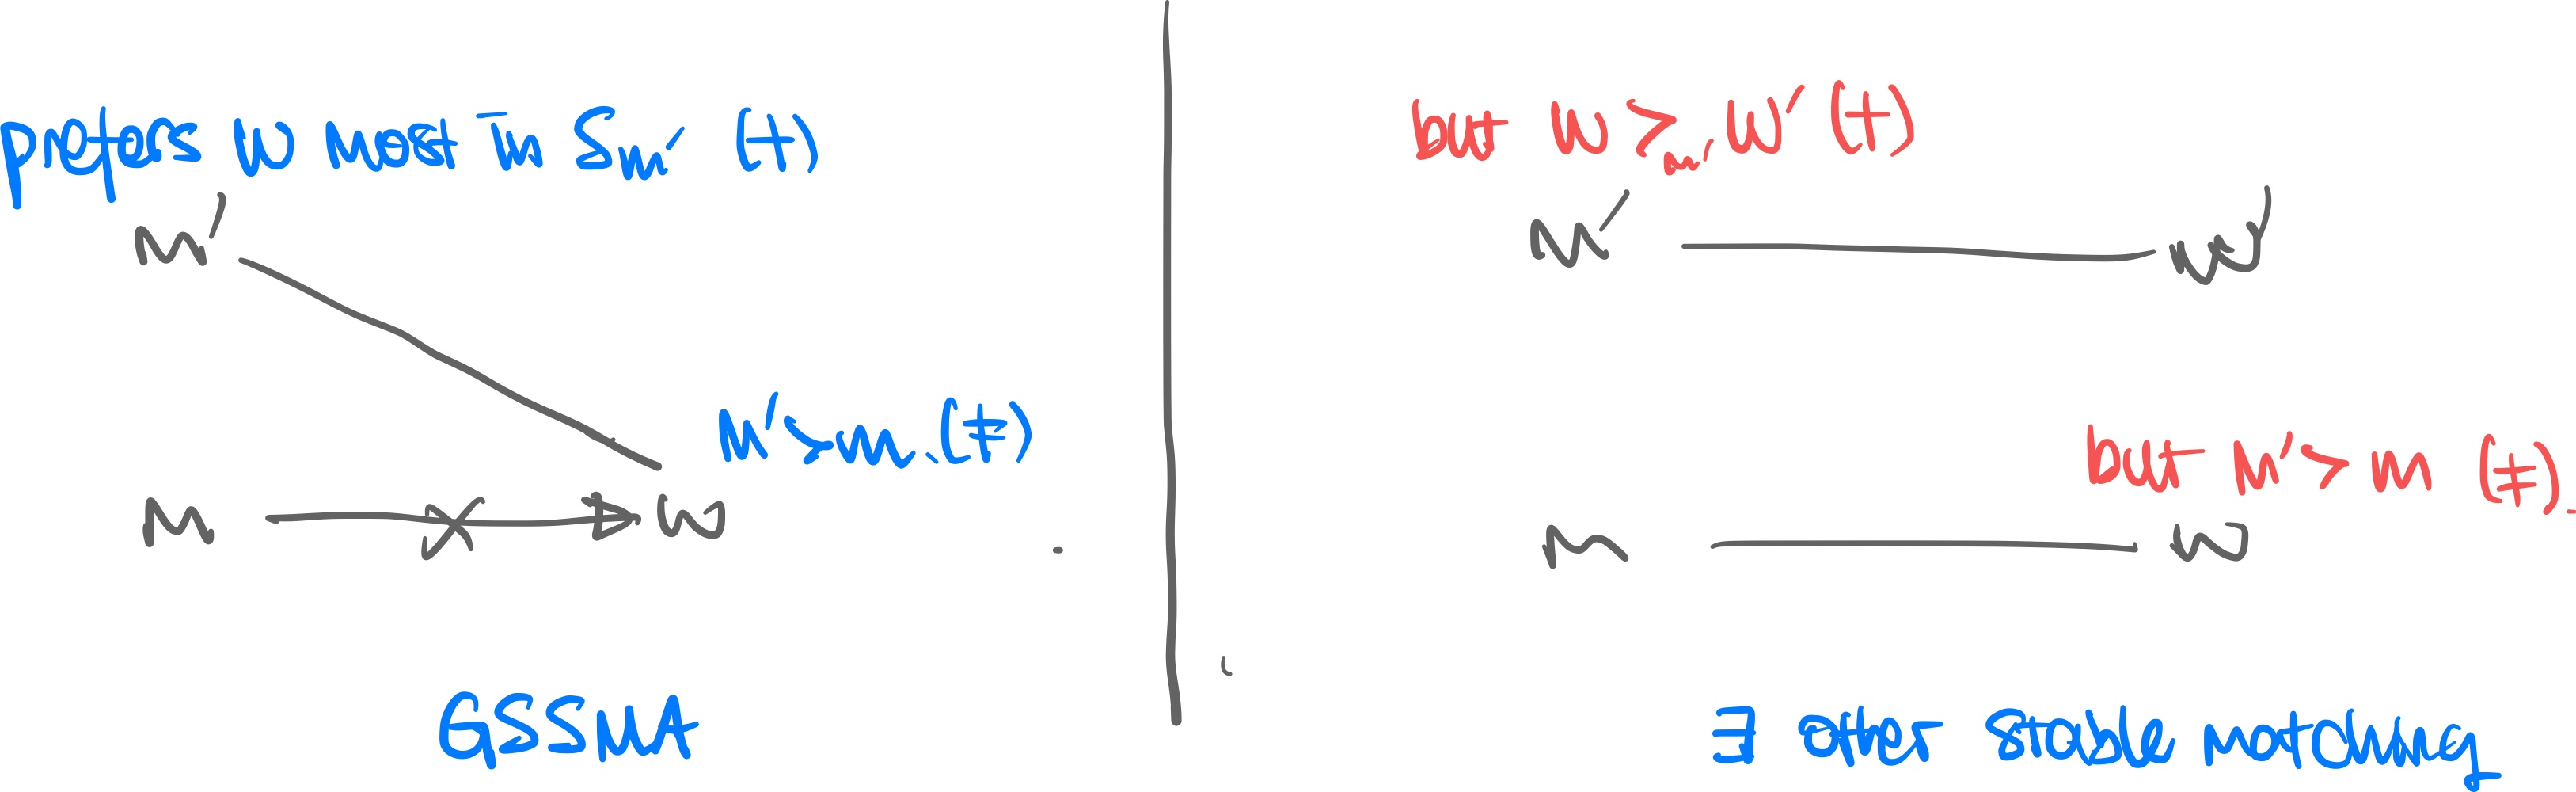 prefers w most in Sm' (†)
m'
m'>m. (‡)
m w
GSSMA
but w >m' w' (†)
m' w'
but m'>m (‡).
m w
∃ other stable matching